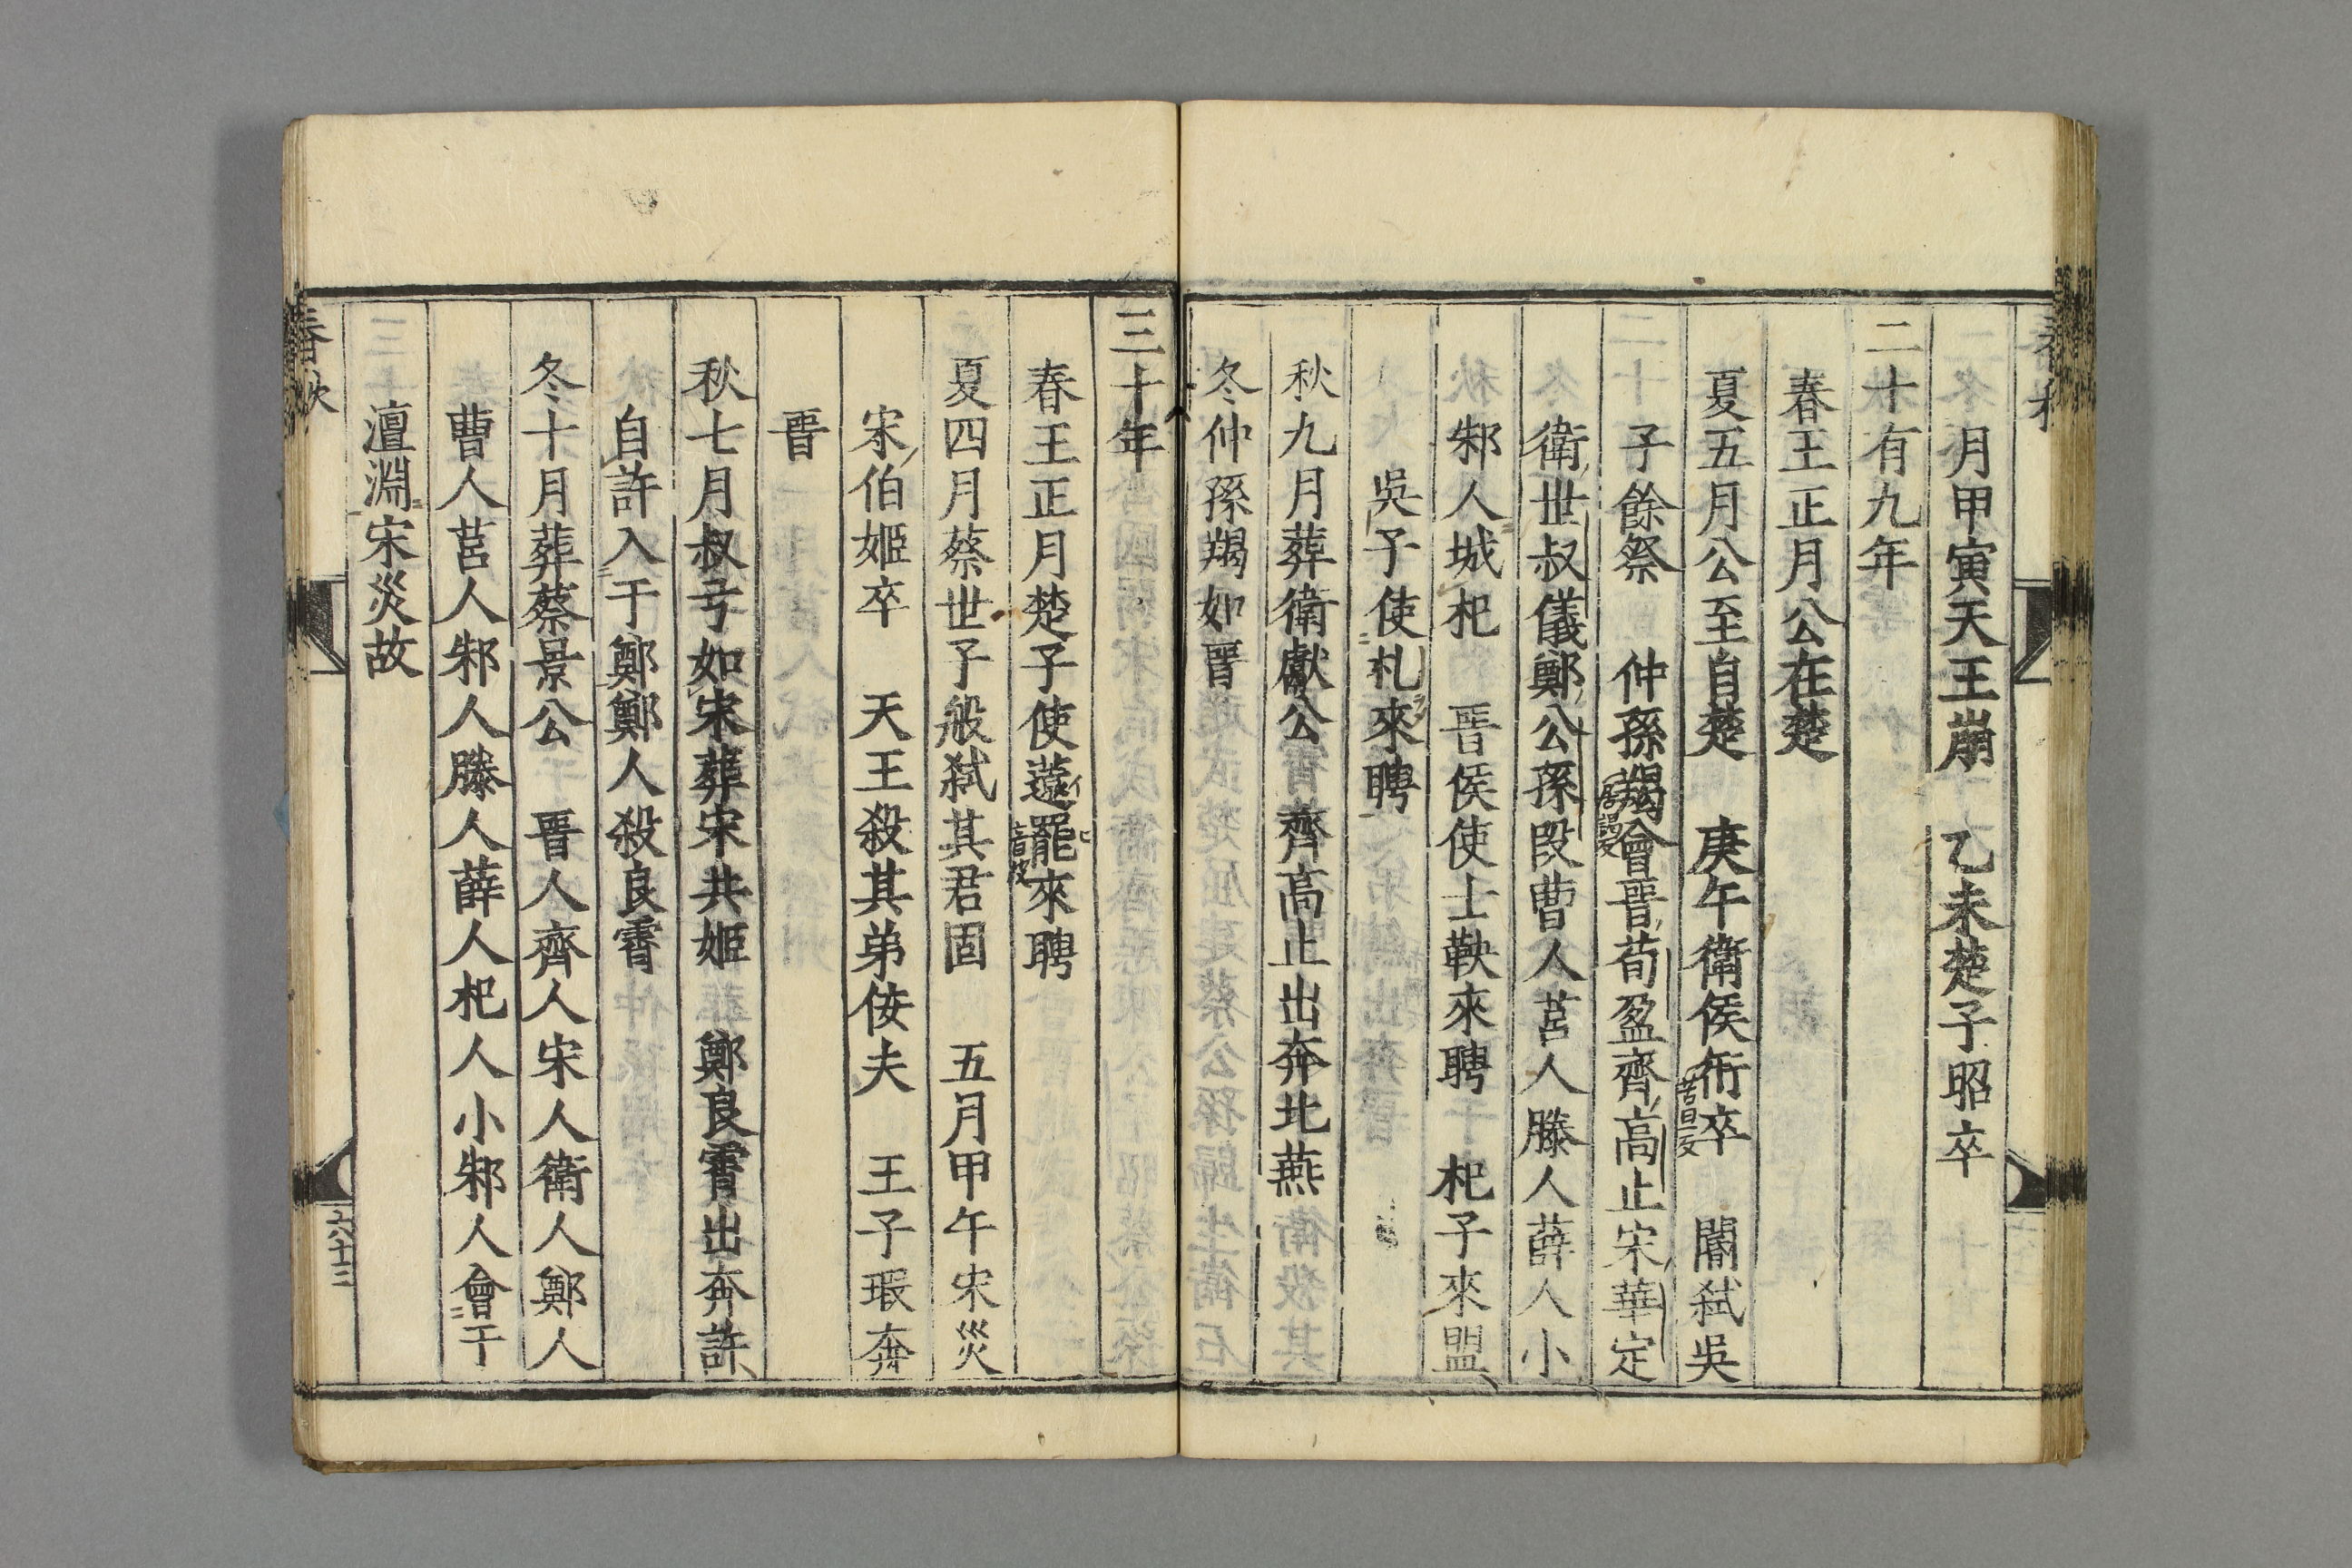 月甲寅天王崩 乙未楚子昭卒
二十有九年
春王正月公在楚
夏五月公至自楚 庚午衛侯衎卒 閽弑吳
苦旦反
子餘祭 仲孫羯會晉荀盈齊高止宋華定
衛世叔儀鄭公孫段曹人莒人滕人薛人小
邾人城杞 晉侯使士鞅來聘 杞子來盟
吳子使札來聘
秋九月葬衛獻公 齊高止出奔北燕
冬仲孫羯如晉
三十年
春王正月楚子使薳罷來聘
音皮
夏四月蔡世子般弑其君固 五月甲午宋災
宋伯姬卒 天王殺其弟佞夫 王子瑕奔
晉
秋七月叔弓如宋葬宋共姬 鄭良霄出奔許
自許入于鄭鄭人殺良霄
冬十月葬蔡景公 晉人齊人宋人衛人鄭人
曹人莒人邾人滕人薛人杞人小邾人會于
澶淵宋災故
春秋
六十三